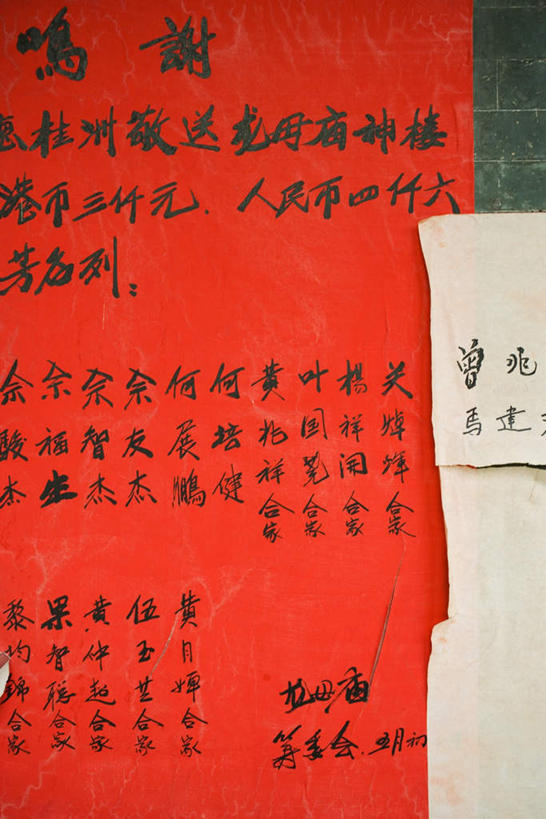 鳴謝
桂洲敬送龙母庙神楼
港币三仟元.人民币四仟六
芳名列：
关焯辉合家
楊祥開合家
叶国尧合家
黄兆祥合家
何培健
何展鵬
佘友杰
佘智杰
佘福生
佘駿杰
黄月婵合家
伍玉芝合家
黄仲超合家
梁智聪合家
黎均錦合家
龙母庙
筹委会.五月初
曾兆
馬建